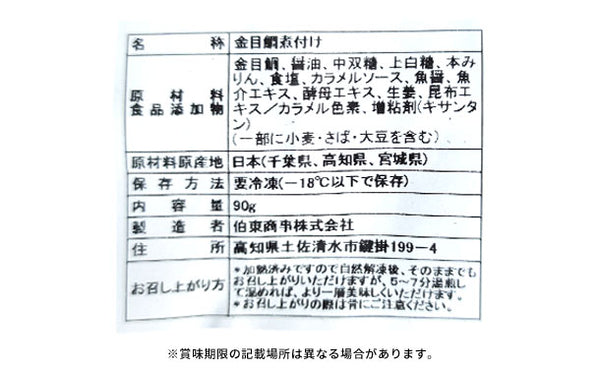 名称 金目鯛煮付け
原材料 食品添加物 金目鯛、醤油、中双糖、上白糖、本み
りん、食塩、カラメルソース、魚醤、魚
介エキス、酵母エキス、生姜、昆布エ
キス/カラメル色素、増粘剤(キサンタ
ン)
(一部に小麦・さば・大豆を含む)
原材料原産地 日本(千葉県、高知県、宮城県)
保存方法 要冷凍(-18℃以下で保存)
内容量 90g
製造者 伯東商事株式会社
住所 高知県土佐清水市鍵掛199-4
お召し上がり方 *加熱済みですので自然解凍後、そのままでも
お召し上がりいただけますが、5~7分湯煎し
て温めれば、より一層美味しくいただけます。
*お召し上がりの際は骨にご注意ください。
※賞味期限の記載場所は異なる場合があります。